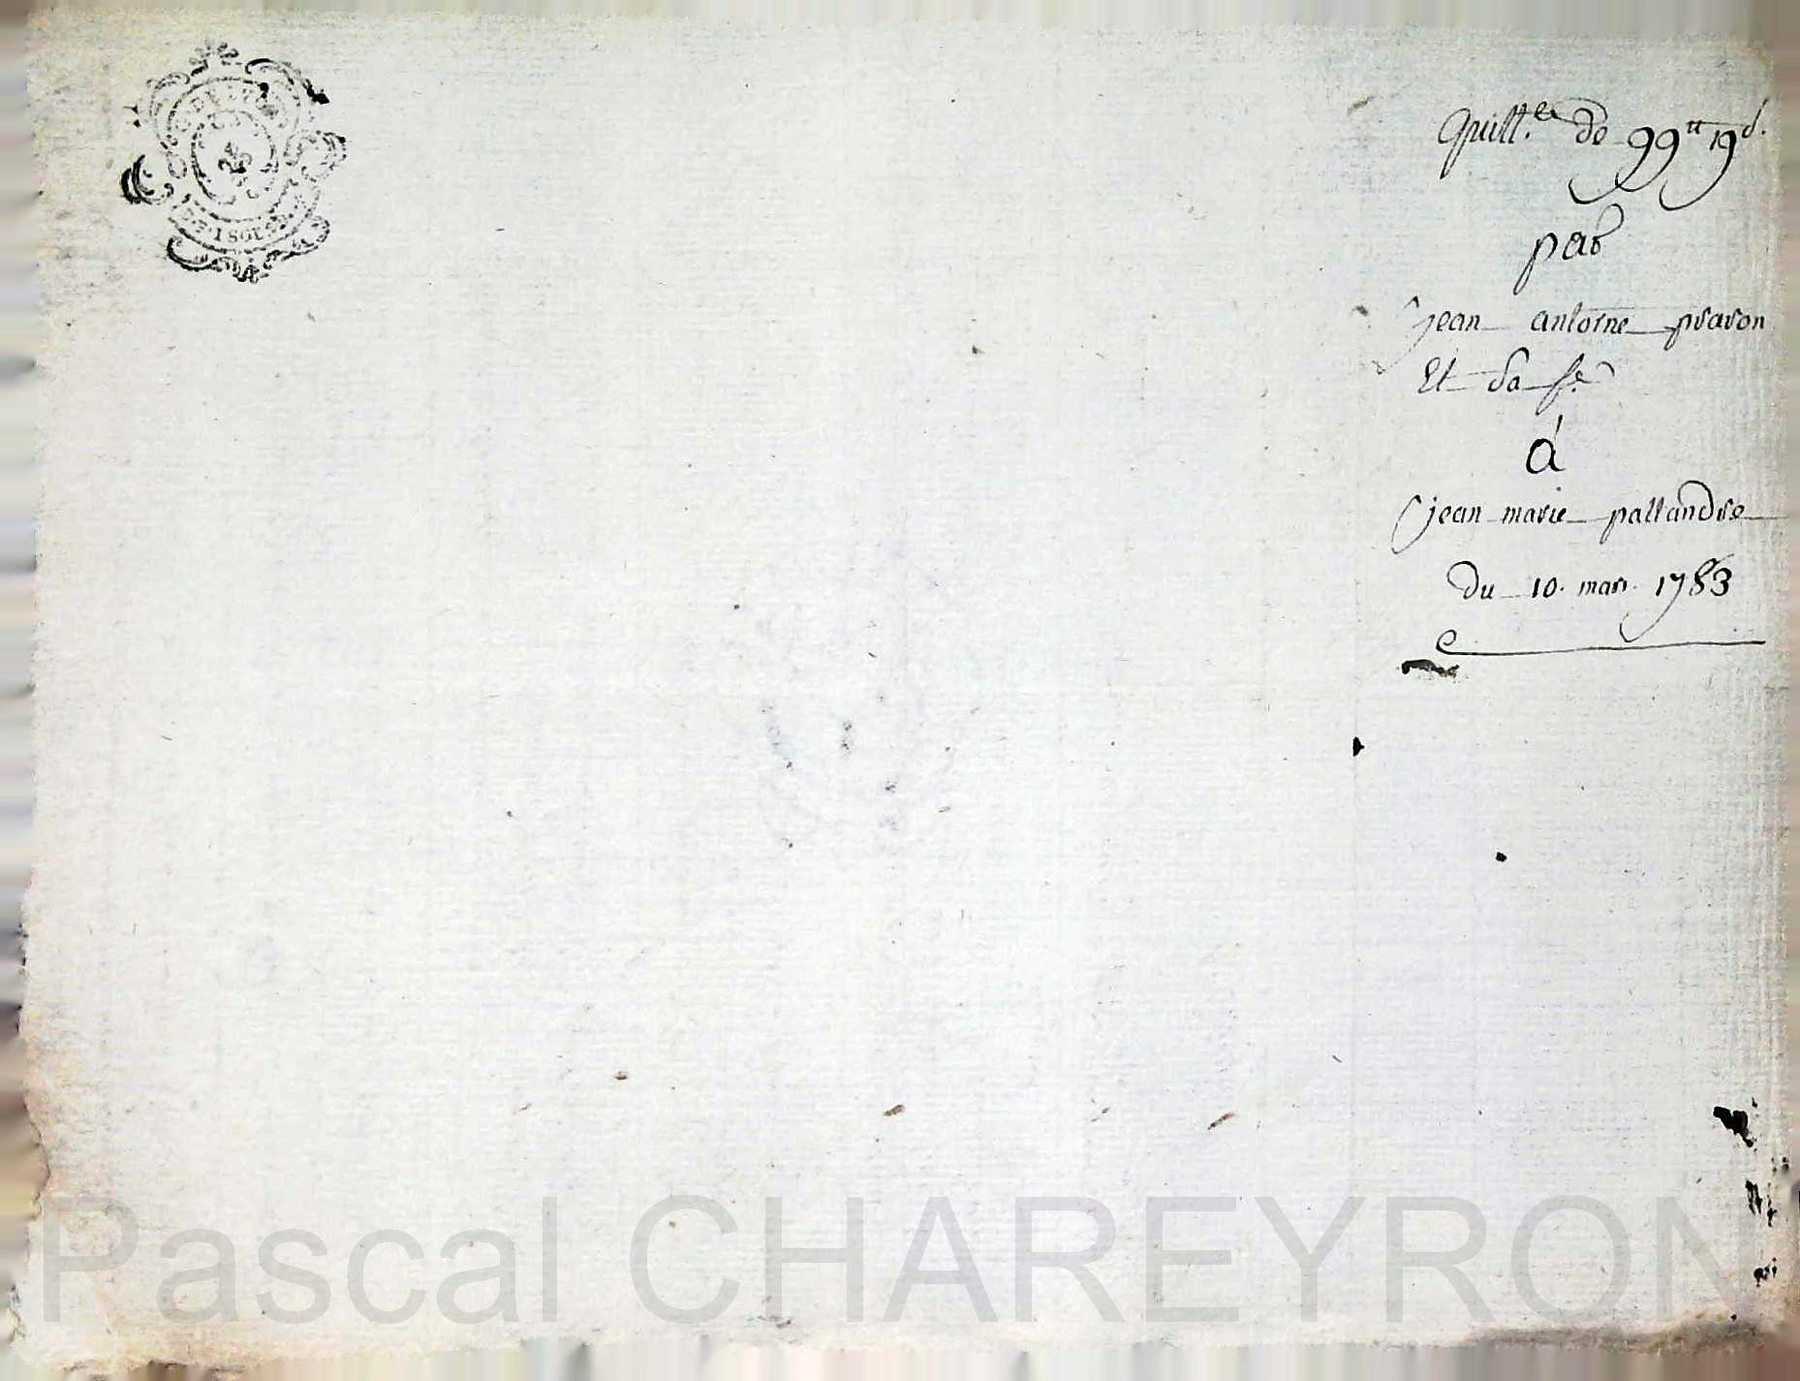 Quitt.ce de 99tt 19d.
par
jean antoine praron
Et sa fe
à
jean marie pallandre
du 10. mars 1783
Pascal CHAREYRON